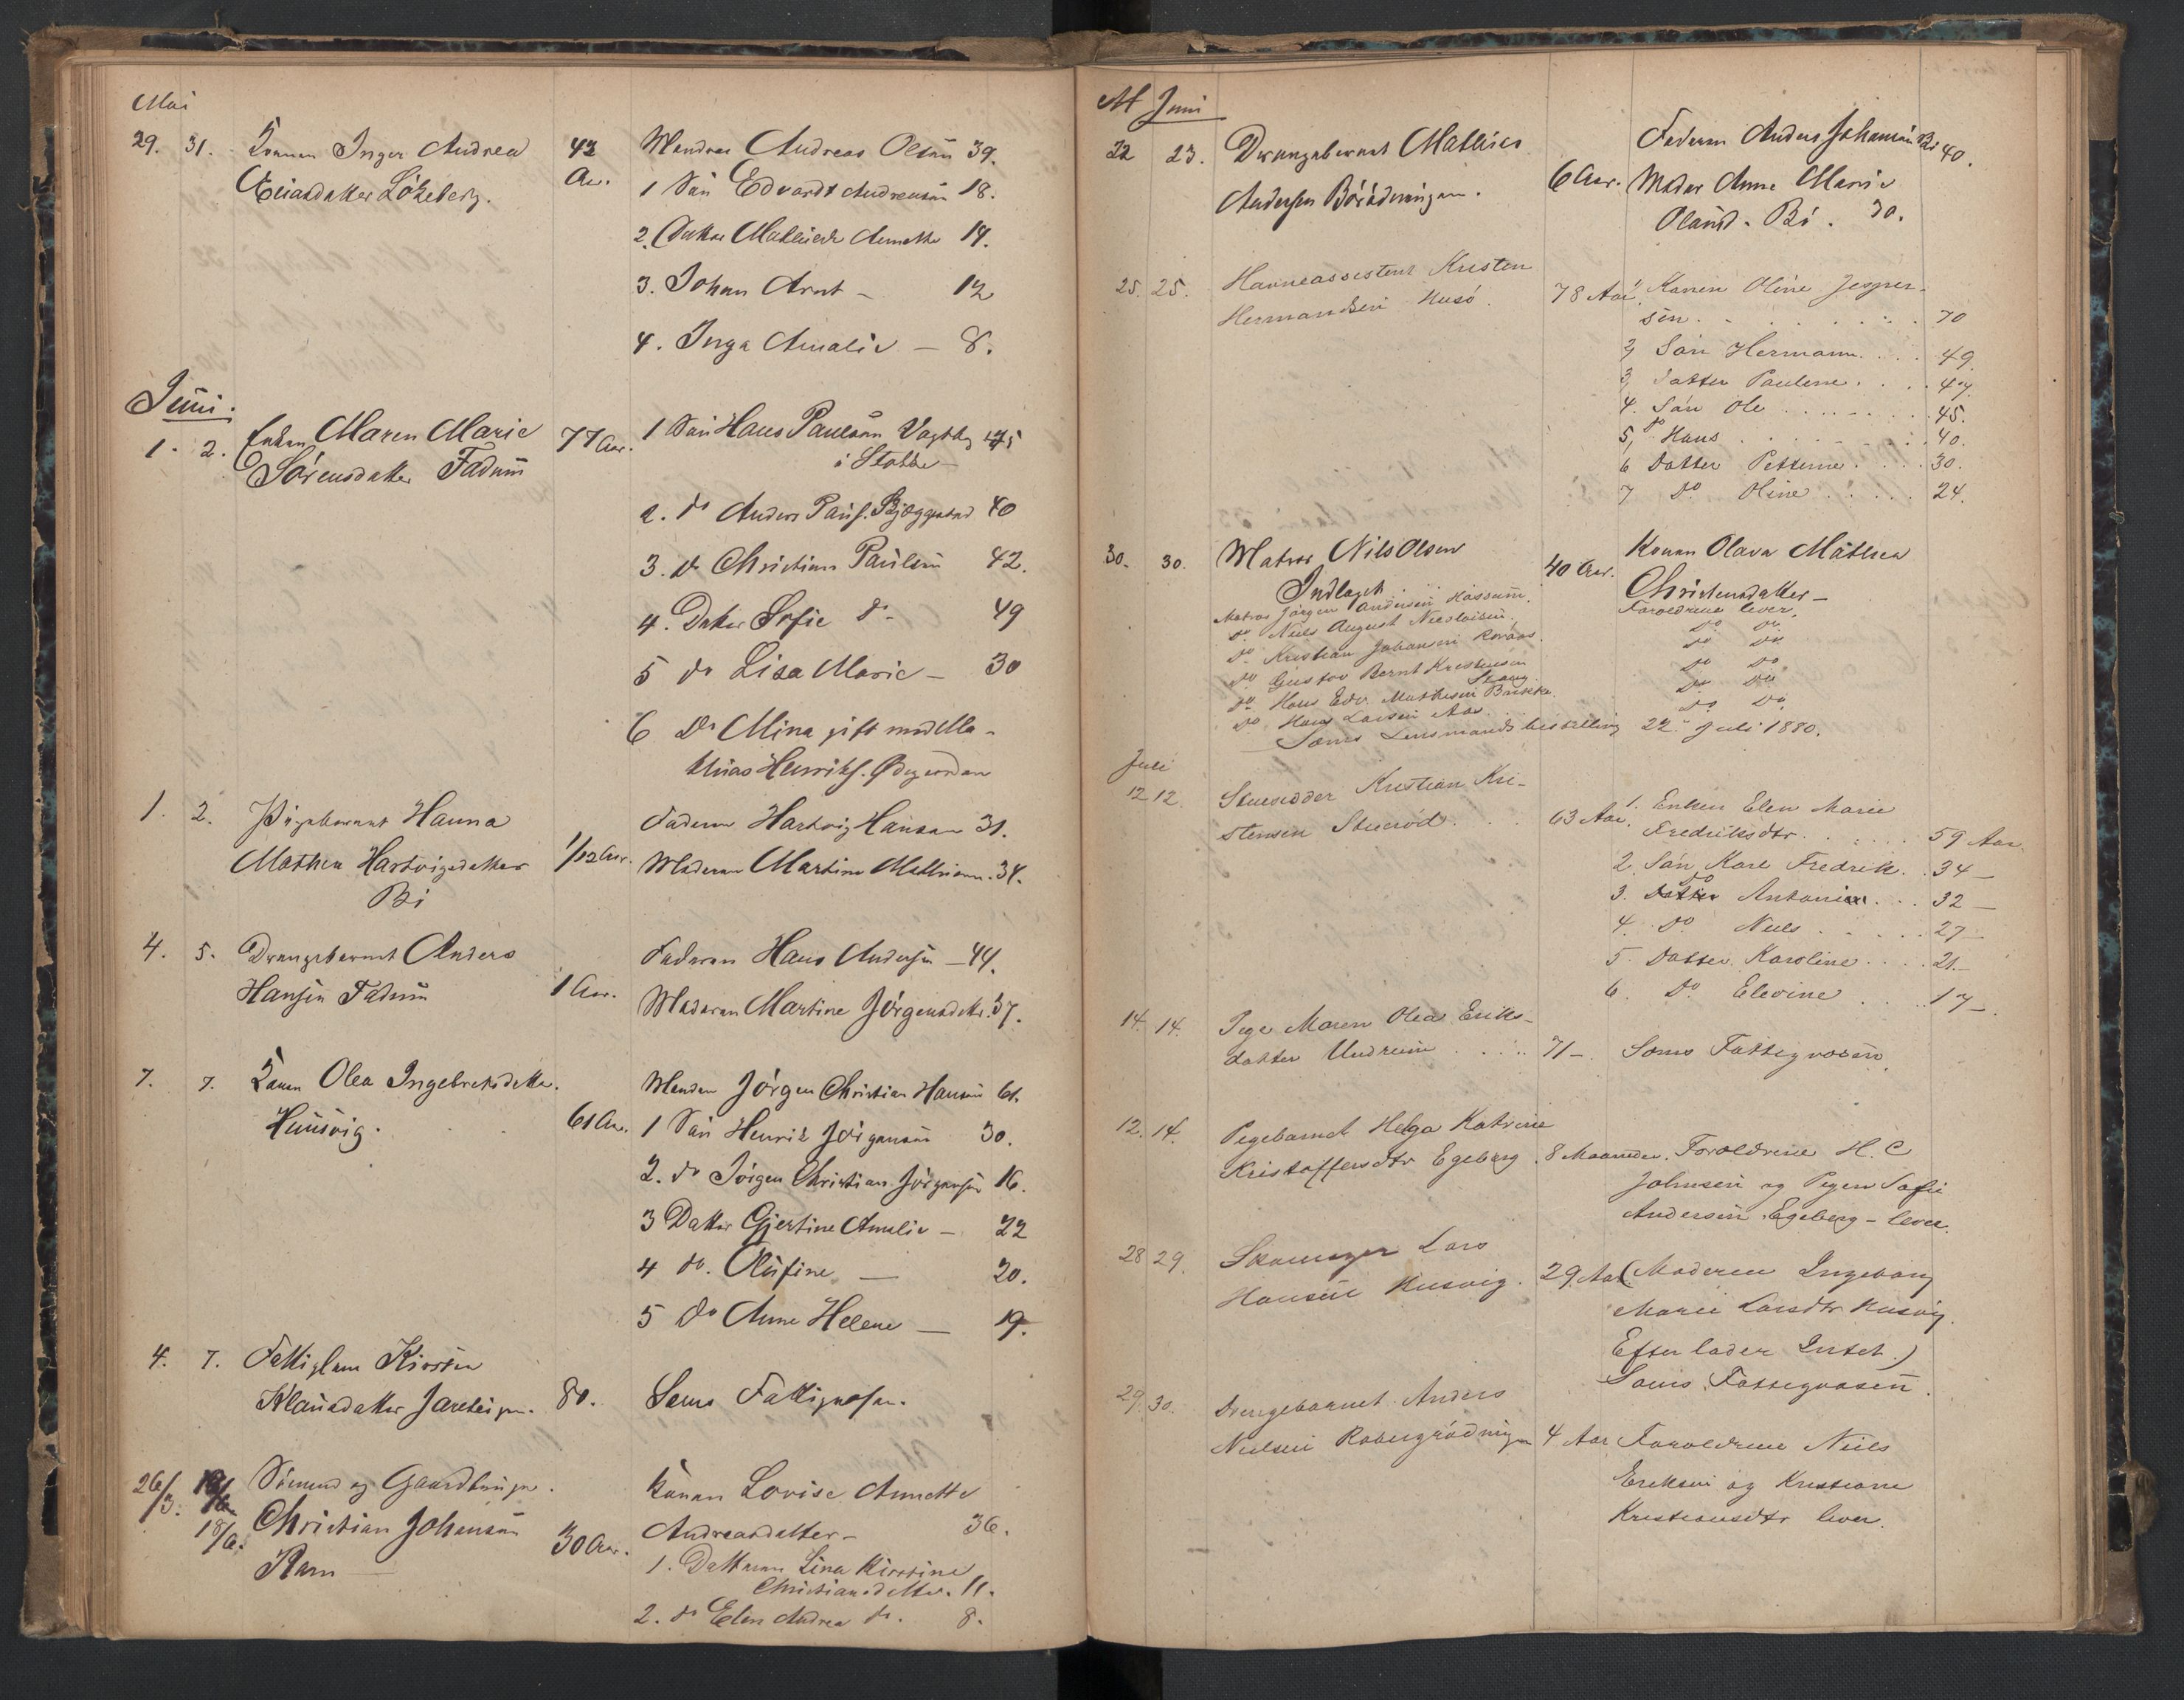 Mai
29. 31. Konen Inger Andrea 42 Manden Andreas Olsen 39.
Eliasdatter Løkeberg. Aar. 1 Søn Edvardt Andreasen 18.
2. Datter Mathilde Annette 14.
3. Johan Arnt – 12
4. Inga Amalie – 8.
Juni.
1. 2. Enken Maren Marie 77 Aar. 1 Søn Hans Paulsen 45
Sørensdatter Fadum i Stokke –
2. do Anders Pauls. 40
3. do Christian Paulsen 42.
4. Datter Sofie do 49
5 do Lisa Marie – 30
6 do Mina gift med Ma-
thias Henriks.
1. 2. Pigebarnet Hanna Faderen Hartvig Hansen 31.
Mathea Hartvigsdatter 1/12 Aar. Moderen Martine 34.
Bø
4. 5. Drengebarnet Anders Faderen Hans Andersen – 44.
Hansen Fadum 1 Aar. Moderen Martine Jørgensdatter. 37.
7. 7. Konen Olea Ingebretsdatter. Manden Jørgen Christian Hansen 61.
Husvig. 61 Aar. 1 Søn Henrik Jørgensen 30.
2. do Jørgen Christian Jørgensen 16.
3 Datter Gjertine Amalie – 22
4 do. Olufine – 20.
5 do Anne Helene – 19.
4. 7. Fattiglem Kirsten
Klausdatter 80. Sems Fattigvæsen.
26/3. 18/6. Sømand og Gaardbruger. Konen Lovise Annette
Christian Johansen 30 Aar. Andreasdatter – 36.
Ram – 1. Datteren Lina Kirstine
Christiansdatter. 11.
2. do Elen Andrea do. 8.
M Juni
22 23. Drengebarnet Mathias Faderen Anders Johansen Bø 40.
Andersen Børódningen. 6 Aar. Moder Anne Marie
Olausd. Bø. 30.
25. 25. Havneassistent Kristen 78 Aar 1, Konen Oline Jesper-
Hermandsen Husø. sen . . . 70
2, Søn Hermann . . . 49
3, Datter Pauline . . . 47
4. Søn Ole . . . 45.
5, do Hans . . . 40.
6 Datter Petterine . . . 30.
7 Do Oline . . . 24.
30. 30. Matros Nils Olsen 40 Aar. Konen Olava Mathea
Indlagt. Christensdatter –
Matros Jørgen Andersen Kossum. Foreldrene lever.
do Niels August Nicolaisen. Do Do
Do Kristian Johansen Roraas. Do Do
do Gustav Bernt Kristensen Skaug Do Do
do Hans Edv. Mathisen Bakke. Do Do
do Hans Larsen Aas. Do Do
Sems Lensmandsbestilling 22. Juli 1880.
Juli
12 12. Stuesidder Kristian Kri- 1. Enken Elen Marie
stensen Stuerød. . . 63 Aar. Fredriksdtr. . . . 59 Aar
2 Søn Karl Fredrik. . 34 –
3. do Anton . . . 32 –
4. Do Niels . . . 27 –
5 Datter Karoline . . . 21. –
6. Do Elevine . . . 17 –
14. 14. Pige Maren Olea Eriks-
datter Undrum . . . 71 –. Sems Fattigvæsen.
12. 14. Pigebarnet Helga Katrine
Kristoffersdtr Egeberg. 8 Maaneder. Foreldrene H. C
Johnsen og Pigen Sofie
Andersen Egeberg – lever.
28 29. Skomager Lars
Hansen Husvig. 29 Aar (Moderen Ingeborg
Marie Larsdtr Husvig.
Efterlader Intet.)
Sems Fattigvæsen.
29. 30. Drengebarnet Anders
Nielsen Robergrødningen 4 Aar Foreldrene Niels
Eriksen og Kristiane
Kristiansdtr lever.